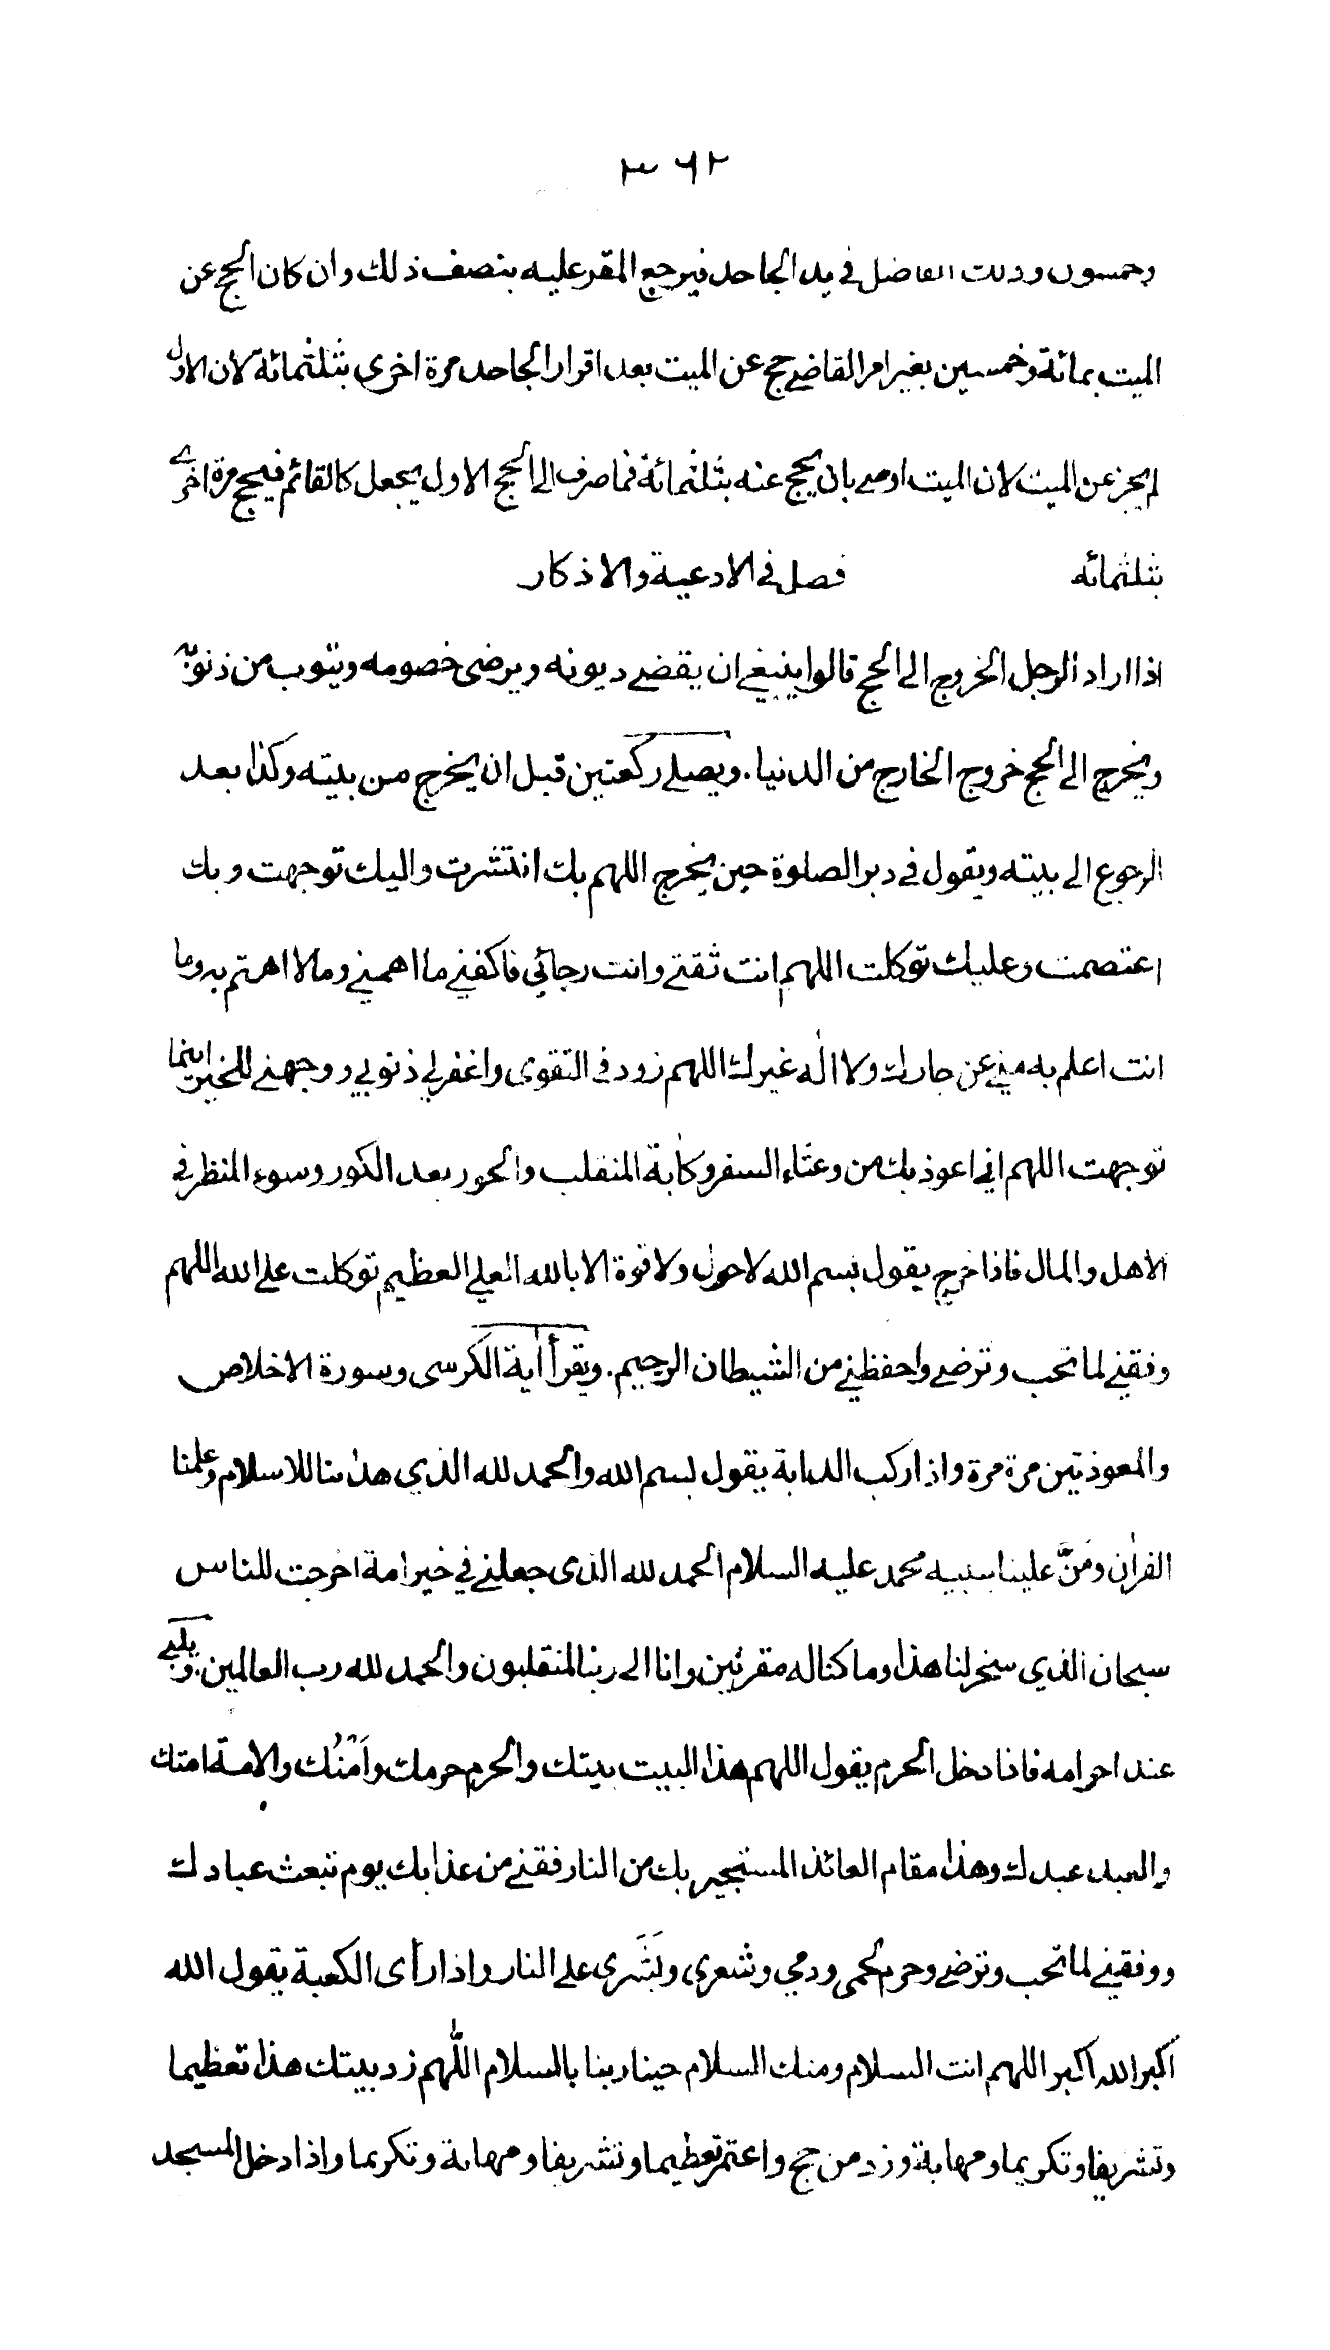 ٣٦٢
وخمسون وذلك الفاضل في يد الجاحد فيرجع المقر عليه بنصف ذلك وان كان الحج عن
الميت بمائة وخمسين بغير امر القاضي حج عن الميت بعد اقرار الجاحد مرة اخرى بثلثمائة لان الاول
لم يجز عن الميت لان الميت اوصى بان يحج عنه بثلثمائة فما صرف الى الحج الاول يجعل كالقائم فيحج مرة اخرى
بثلثمائه فصل في الادعية والاذكار
اذا اراد الرجل الخروج الى الحج قالوا ينبغي ان يقضي ديونه ويرضى خصومه ويتوب من ذنوبه
ويخرج الى الحج خروج الخارج من الدنيا. ويصلي ركعتين قبل ان يخرج من بيته وكذا بعد
الرجوع الى بيته ويقول في دبر الصلوة حين يخرج اللهم بك انتشرت واليك توجهت وبك
اعتصمت وعليك توكلت اللهم انت ثقتي وانت رجائي فاكفني ما اهمني وما لا اهتم به وما
انت اعلم به مني عز جارك ولا اله غيرك اللهم زودني التقوى واغفر لي ذنوبي ووجهني للخير اينما
توجهت اللهم اني اعوذ بك من وعثاء السفر وكابة المنقلب والحور بعد الكور وسوء المنظر في
الاهل والمال فاذا خرج يقول بسم الله لا حول ولا قوة الا بالله العلي العظيم توكلت على الله اللهم
وفقني لما تحب وترضى واحفظني من الشيطان الرجيم. ويقرأ اية الكرسى وسورة الاخلاص
والمعوذتين مرة مرة واذا ركب الدابة يقول بسم الله والحمد لله الذي هدانا للاسلام وعلمنا
القرآن ومَنَّ علينا بنبيه محمد عليه السلام الحمد لله الذى جعلني في خير امة اخرجت للناس
سبحان الذي سخر لنا هذا وما كنا له مقرنين وانا الى ربنا لمنقلبون والحمد لله رب العالمين. ويلبي
عند احرامه فاذا دخل الحرم يقول اللهم هذا البيت بيتك والحرم حرمك وَاَمْنُك والامة امتك
والعبد عبدك وهذا مقام العائذ المستجير بك من النار فقني من عذابك يوم تبعث عبادك
ووفقني لما تحب وترضى وحرم لحمى ودمي وشعري وبَشَرى على النار واذا رأى الكعبة يقول الله
اكبر الله اكبر اللهم انت السلام ومنك السلام حينا ربنا بالسلام اللّهم زد بيتك هذا تعظيما
وتشريفا وتكريما ومهابة وزد من حج واعتمر تعظيما وتشريفا ومهابة وتكريما واذا دخل المسجد